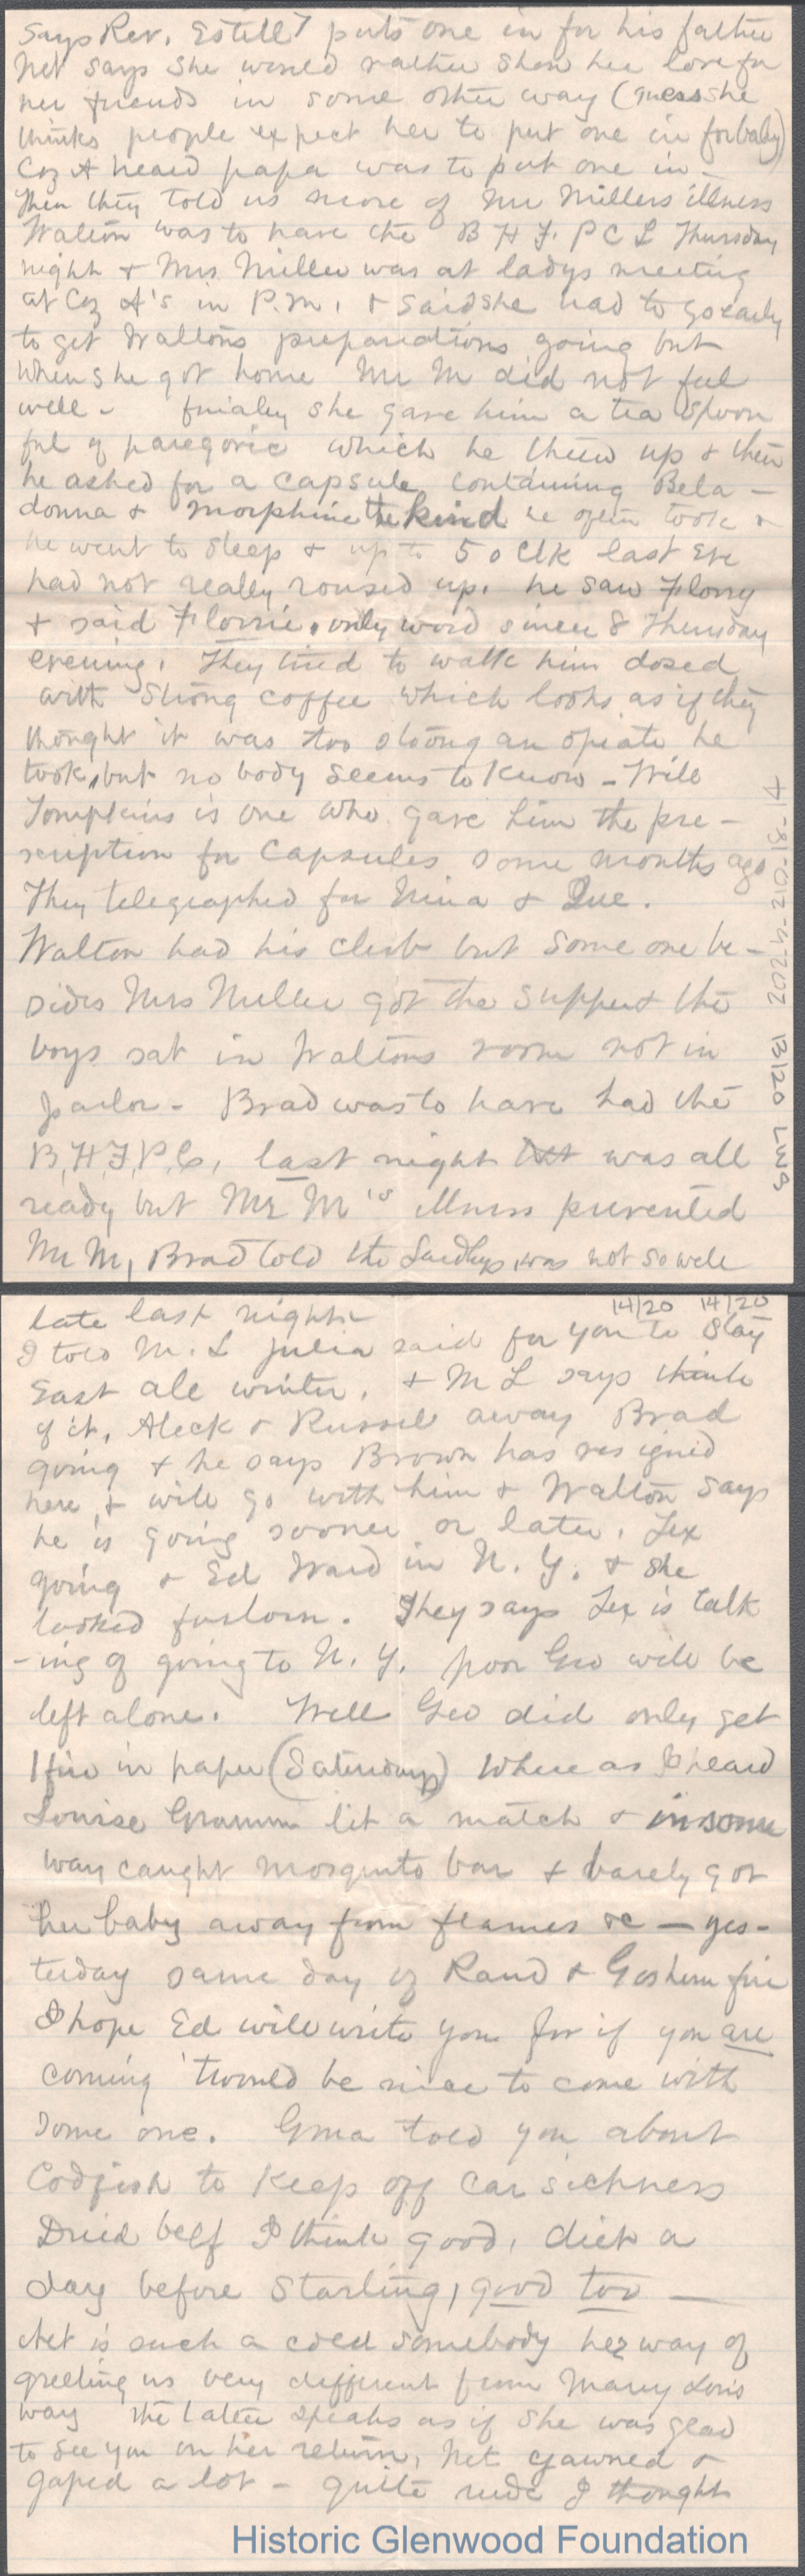 Says Rev. Estell puts one in for his father
Net says she would rather show her love for
her friends in some other way (guess she
thinks people expect her to put one in for baby)
Coz A heard papa was to put one in -
Then they told us more of Mr Millers illness
Walton was to have the B H F. P C L Thursday
night & Mrs. Miller was at ladys meeting
at Coz A's in P.M. & said she had to go early
to get Waltons preparations going but
when she got home Mr M did not feel
well - finialey she gave him a tea spoon
ful of paregoric which he threw up & then
he asked for a capsule containing Bela -
donna & morphine the kind he often took &
he went to sleep & up to 5 o clk last eve
had not really roused up. he saw Florry
& said Florrie, only word since 8 Thursday
evening. They tried to walk him dosed
with strong coffee which looks as if they
thought it was too strong an opiate he
took, but no body seems to know - Will
Tompkins is one who gave him the pre -
scription for Capsules some months ago
They telegraphed for Nina & Sue.
Walton had his club but some one be -
sides Mrs Miller got the supper & the
boys sat in Waltons room not in
parlor - Brad was to have had the
B, H, F, P, C, last night was all
ready but Mr M's illness prevented
Mr M, Brad told the was not so well
2024-210-18-14
13/20 LWG
14/20 14/20
late last night
I told M. L Julia said for you to stay
East all winter, & M L says think
of it, Aleck & Russell away Brad
going & he says Brown has resigned
here, & will go with him & Walton says
he is going sooner or later, Lex
going & Ed Ward in N. Y. & she
looked forlorn. They says Lex is talk
-ing of going to N. Y. poor Geo will be
left alone. Well Geo did only get
1 fire in paper (Saturdays) where as I heard
Louise Gramm lit a match & in some
way caught mosquito bar & barely got
her baby away from flames &c - yes-
terday same day of Rand & Goshern fire
I hope Ed will write you for if you are
coming 'twould be nice to come with
some one. Gma told you about
Codfish to keep off car sickness
Dried beef I think good, diet a
day before starting, good too -
Net is such a cold somebody her way of
greeting us very different from Mary Lou's
way the latter speaks as if she was glad
to see you on her return, Net yawned &
gaped a lot - quite rude I thought
Historic Glenwood Foundation